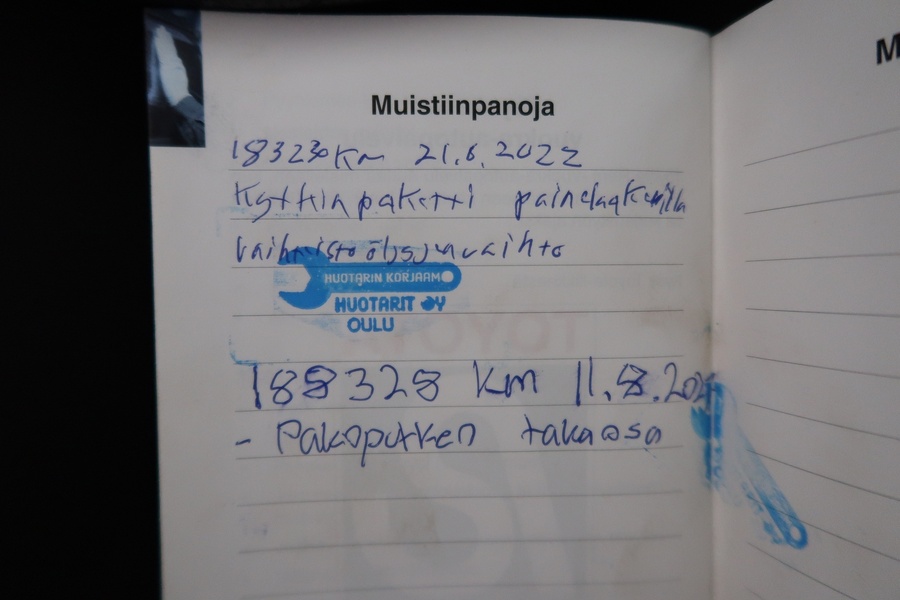 Muistiinpanoja
M
183230 km 21.6.2022
Kytkinpaketti painelaakerilla
vaihteistoöljynvaihto
HUOTARIN KORJAAMO
HUOTARIT OY
OULU
188328 km 11.8.202
- Pakoputken takaosa